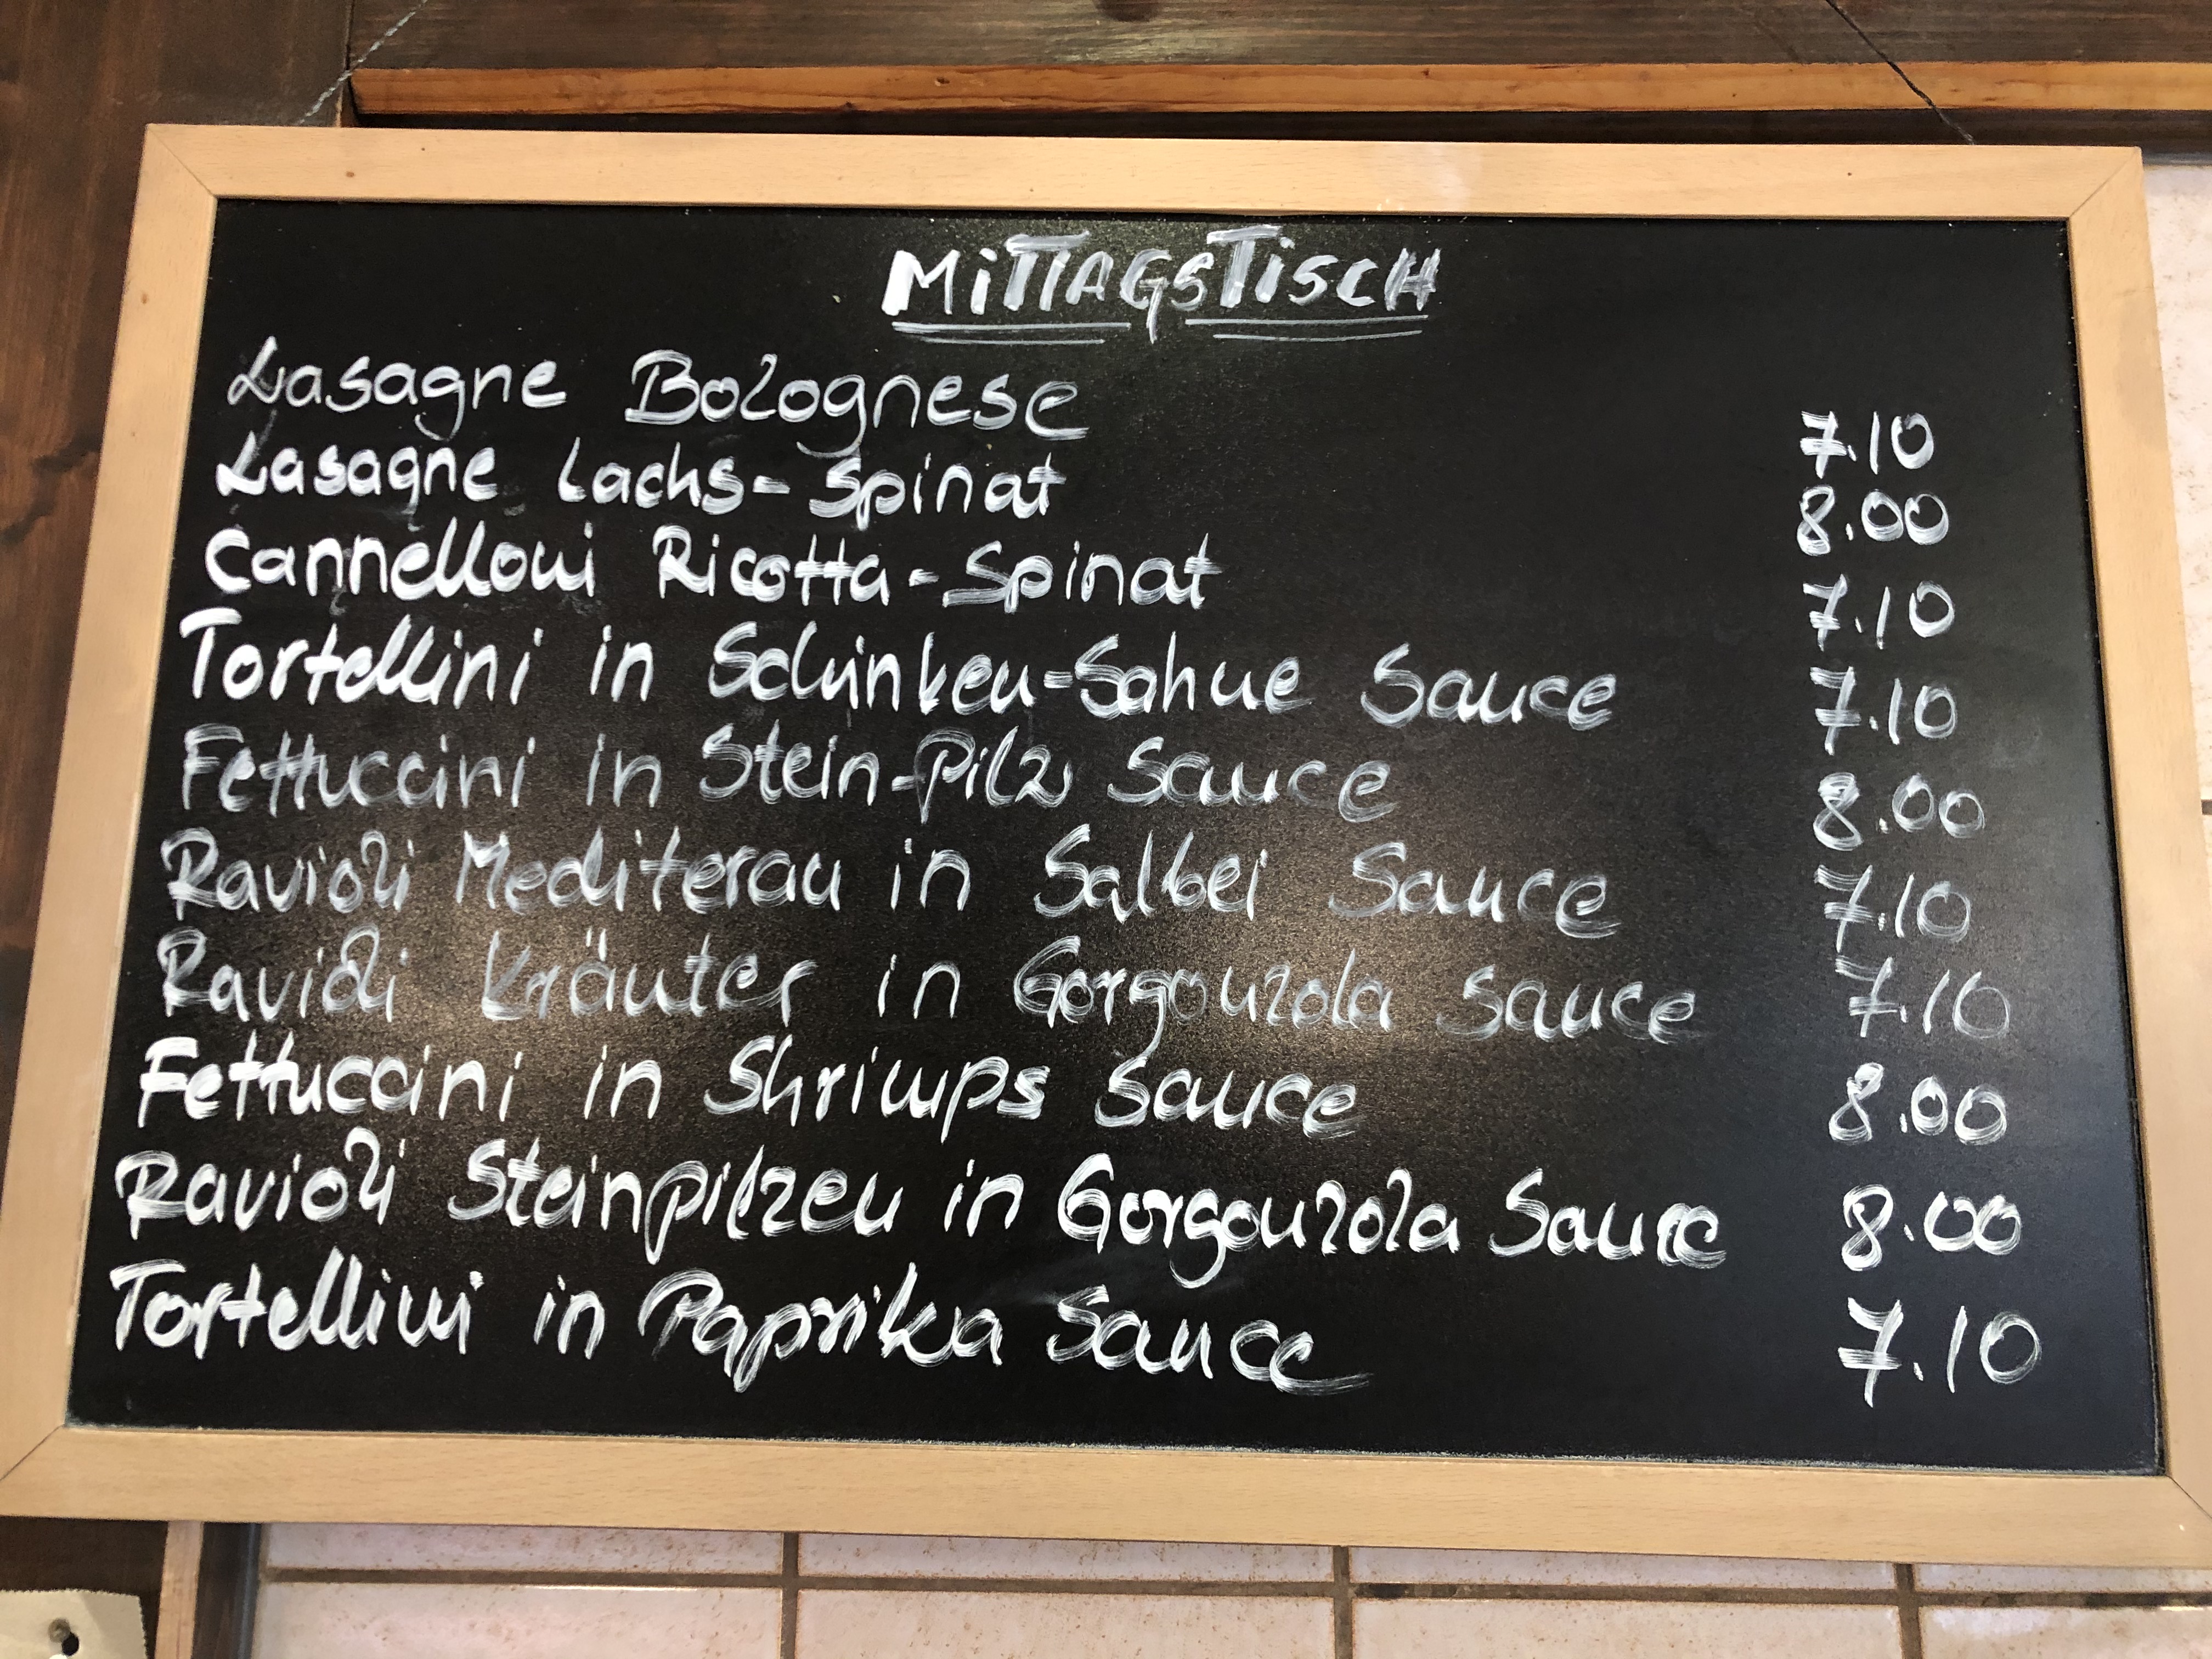 MITTAGSTISCH
Lasagne Bolognese 7.10
Lasagne Lachs-Spinat 8.00
Cannelloni Ricotta-Spinat 7.10
Tortellini in Schinken-Sahne Sauce 7.10
Fettuccini in Stein-Pilz Sauce 8.00
Ravioli Mediteran in Salbei Sauce 7.10
Ravioli Kräuter in Gorgonzola Sauce 7.10
Fettuccini in Shrimps Sauce 8.00
Ravioli Steinpilzen in Gorgonzola Sauce 8.00
Tortellini in Paprika Sauce 7.10